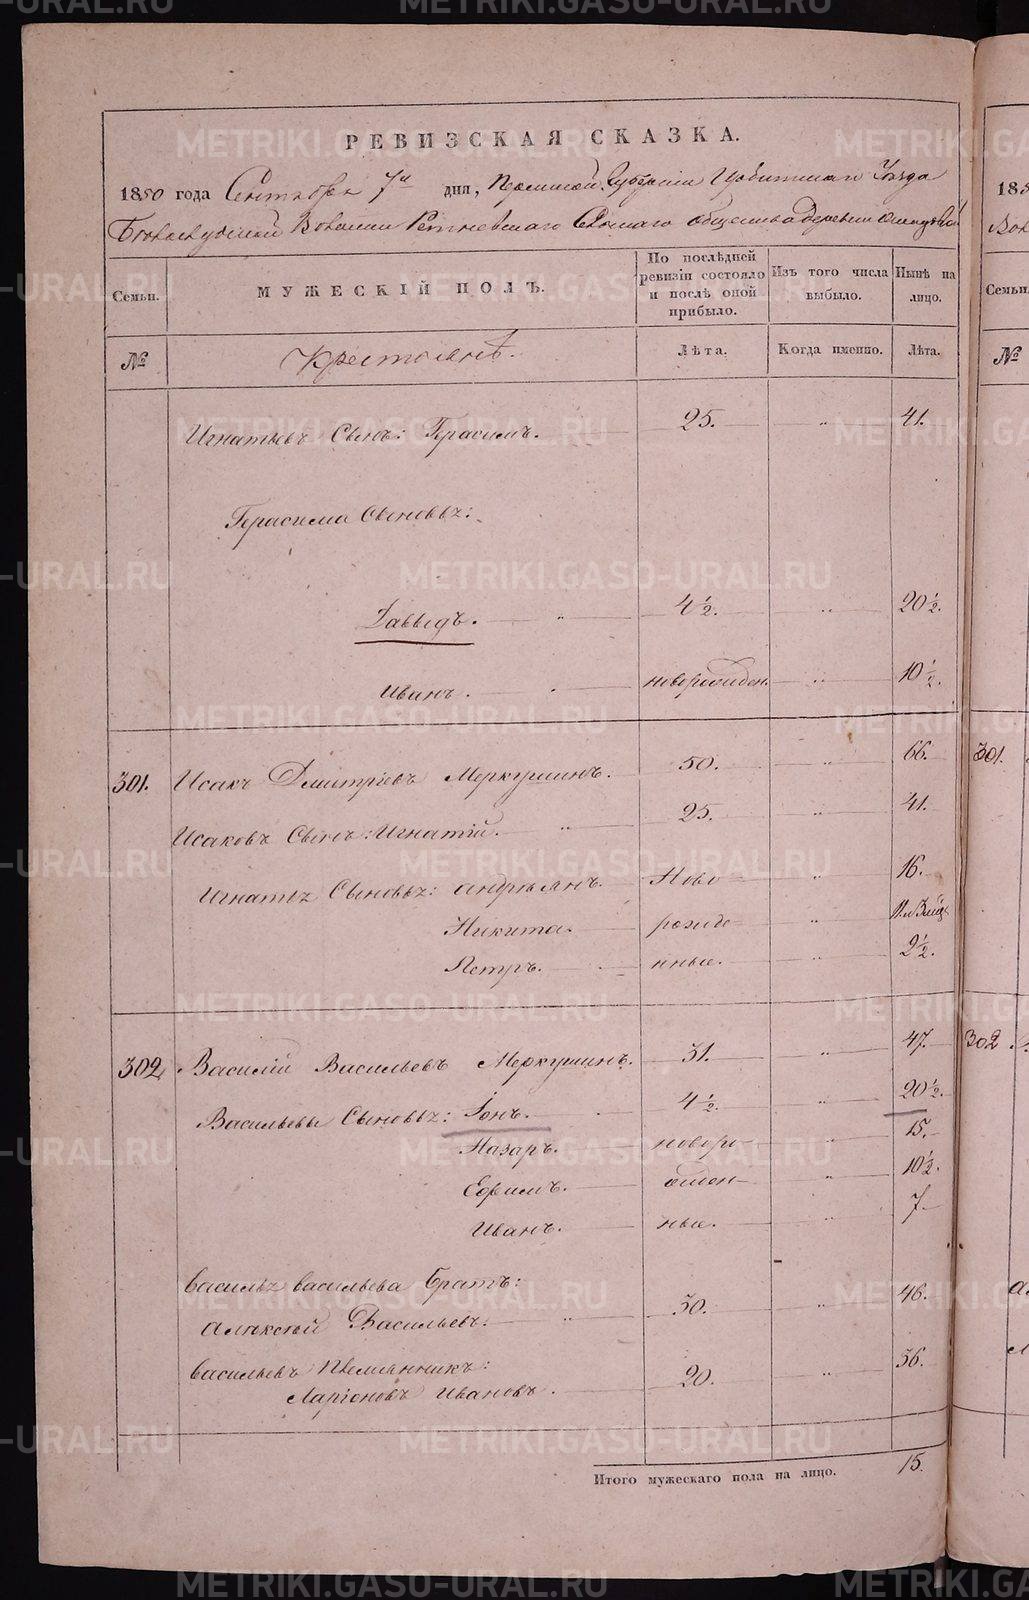 РЕВИЗСКАЯ СКАЗКА.
1850 года Сентября 7го дня, Пермской Губернiи Ирбитскаго Уезда
Волости Сельскаго Общества деревни
Семьи. МУЖЕСКIЙ ПОЛЪ. По послѣдней ревизiи состояло и послѣ оной прибыло. Изъ того числа выбыло. Нынѣ на лицо.
№ Крестьянѣ. Лѣта. Когда именно. Лѣта.
Игнатьевъ Сынъ: Герасимъ. 25. " 41.
Герасима Сыновья:
Давыдъ. " 4½. " 20½.
Иванъ. " новорожден. " 10½.
301. Исакъ Дмитрiевъ Меркушинъ. 50. " 66. 301.
Исаковъ Сынъ: Игнатiй. " 25. " 41.
Игнатья Сыновья: Андреянъ. Ново " 16.
Никита. рожде "
Петръ. нные. " 2½.
302. Василiй Васильевъ Меркушинъ. 31. " 47. 302.
Васильевы Сыновья: Iонъ. " 4½. " 20½.
Назаръ. новоро " 15.
Ефимъ. жден " 10½.
Иванъ. ные. " 7
Василья Васильева Братъ:
Алексѣй Васильевъ. " 30. " 46.
Васильевъ Племянникъ:
Ларiоновъ Иванъ. 20. " 36.
Итого мужескаго пола на лицо. 15.
METRIKI.GASO-URAL.RU